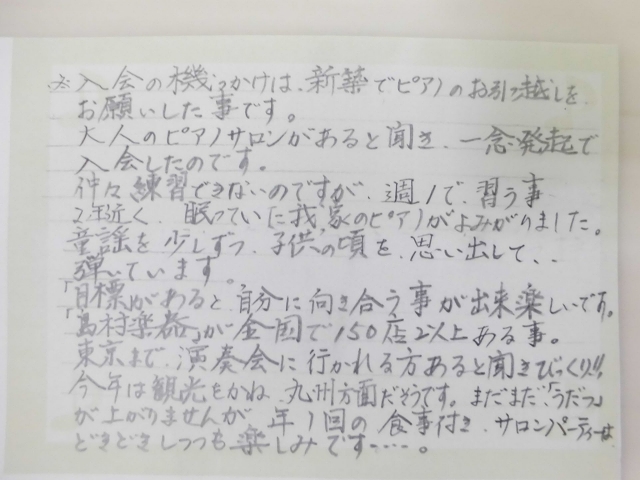 ※入会の機っかけは、新築でピアノのお引っ越しを、
お願いした事です。
大人のピアノサロンがあると聞き、一念発起で
入会したのです。
仲々練習できないのですが、週1で、習う事
2年近く、眠っていた我家のピアノがよみがりました。
童謡を少しずつ、子供の頃を、思い出して、、
弾いています。
「目標」があると、自分に向き合う事が出来楽しいです。
「島村楽器」が全国で150店以上ある事。
東京まで、演奏会に行かれる方あると聞きびっくり!!
今年は観光をかね、九州方面だそうです。まだまだ、「うだつ」
が上がりませんが年1回の食事付き、サロンパーティーは
どきどきしつつも楽しみです……。